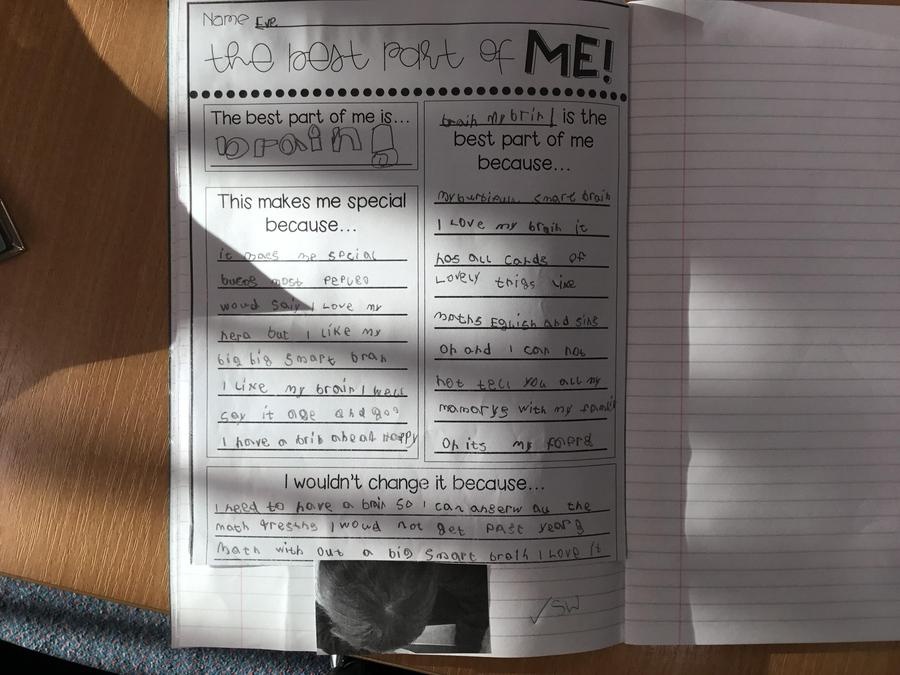 Name Eve
the best part of ME!
The best part of me is...
brain!
This makes me special
because...
it maes me special
buces most pepleo
woud saiy I Love my
hera but I Like my
big big smart bran
I Like my brain I well
say it age and
I have a brib aheat Happy
brain my brin is the
best part of me
because...
smart brain
I Love my brain it
has all cands of
Lovely thigs like
maths Eglish and sins
Oh and I can not
not tell you all my
mamorys with my
Oh its my
I wouldn't change it because...
I need to have a brain so I can anserw all the
math I woud not get past year
math with out a big smart brain I Love it
✓SW